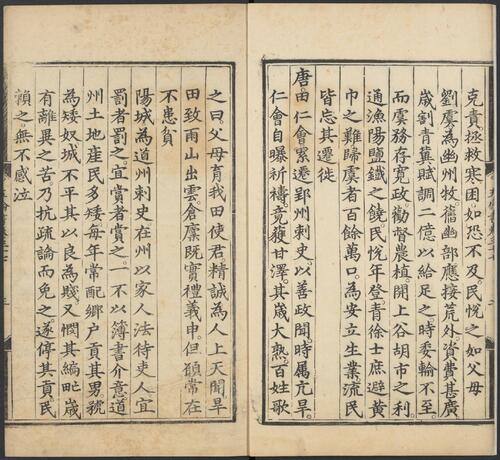 克責拯救寒困如恐不及民悅之如父母
劉虞為幽州牧舊幽部應接荒外資費甚廣
歲割青冀賦調二億以給足之時委輸不至
而虞務存寬政勸督農植開上谷胡市之利
通漁陽鹽鐵之饒民悅年登青徐士庶避黃
巾之難歸虞者百餘萬口為安立生業流民
皆忘其遷徙
唐田仁會累遷郢州刺史以善政聞時属亢旱
仁會自曝祈禱竟獲甘澤其歲大熟百姓歌
之曰父母育我田使君精誠為人上天聞旱
田致雨山出雲倉廩既實禮義申但願常在
不患貧
陽城為道州刺史在州以家人法待吏人宜
罰者罰之宜賞者賞之一不以簿書介意道
州土地産民多矮每年常配鄉户貢其男號
為矮奴城不平其以良為賤又憫其編甿歲
有離異之苦乃抗疏論而免之遂停其貢民
賴之無不感泣